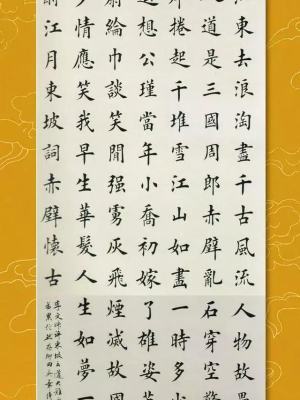 江東去浪淘盡千古風流人物故壘
道是三國周郎赤壁亂石穿空驚
捲起千堆雪江山如畫一時多少
想公瑾當年小喬初嫁了雄姿英
扇綸巾談笑間强虜灰飛煙滅故國
多情應笑我早生華髮人生如夢一
酹江月東坡詞赤壁懷古